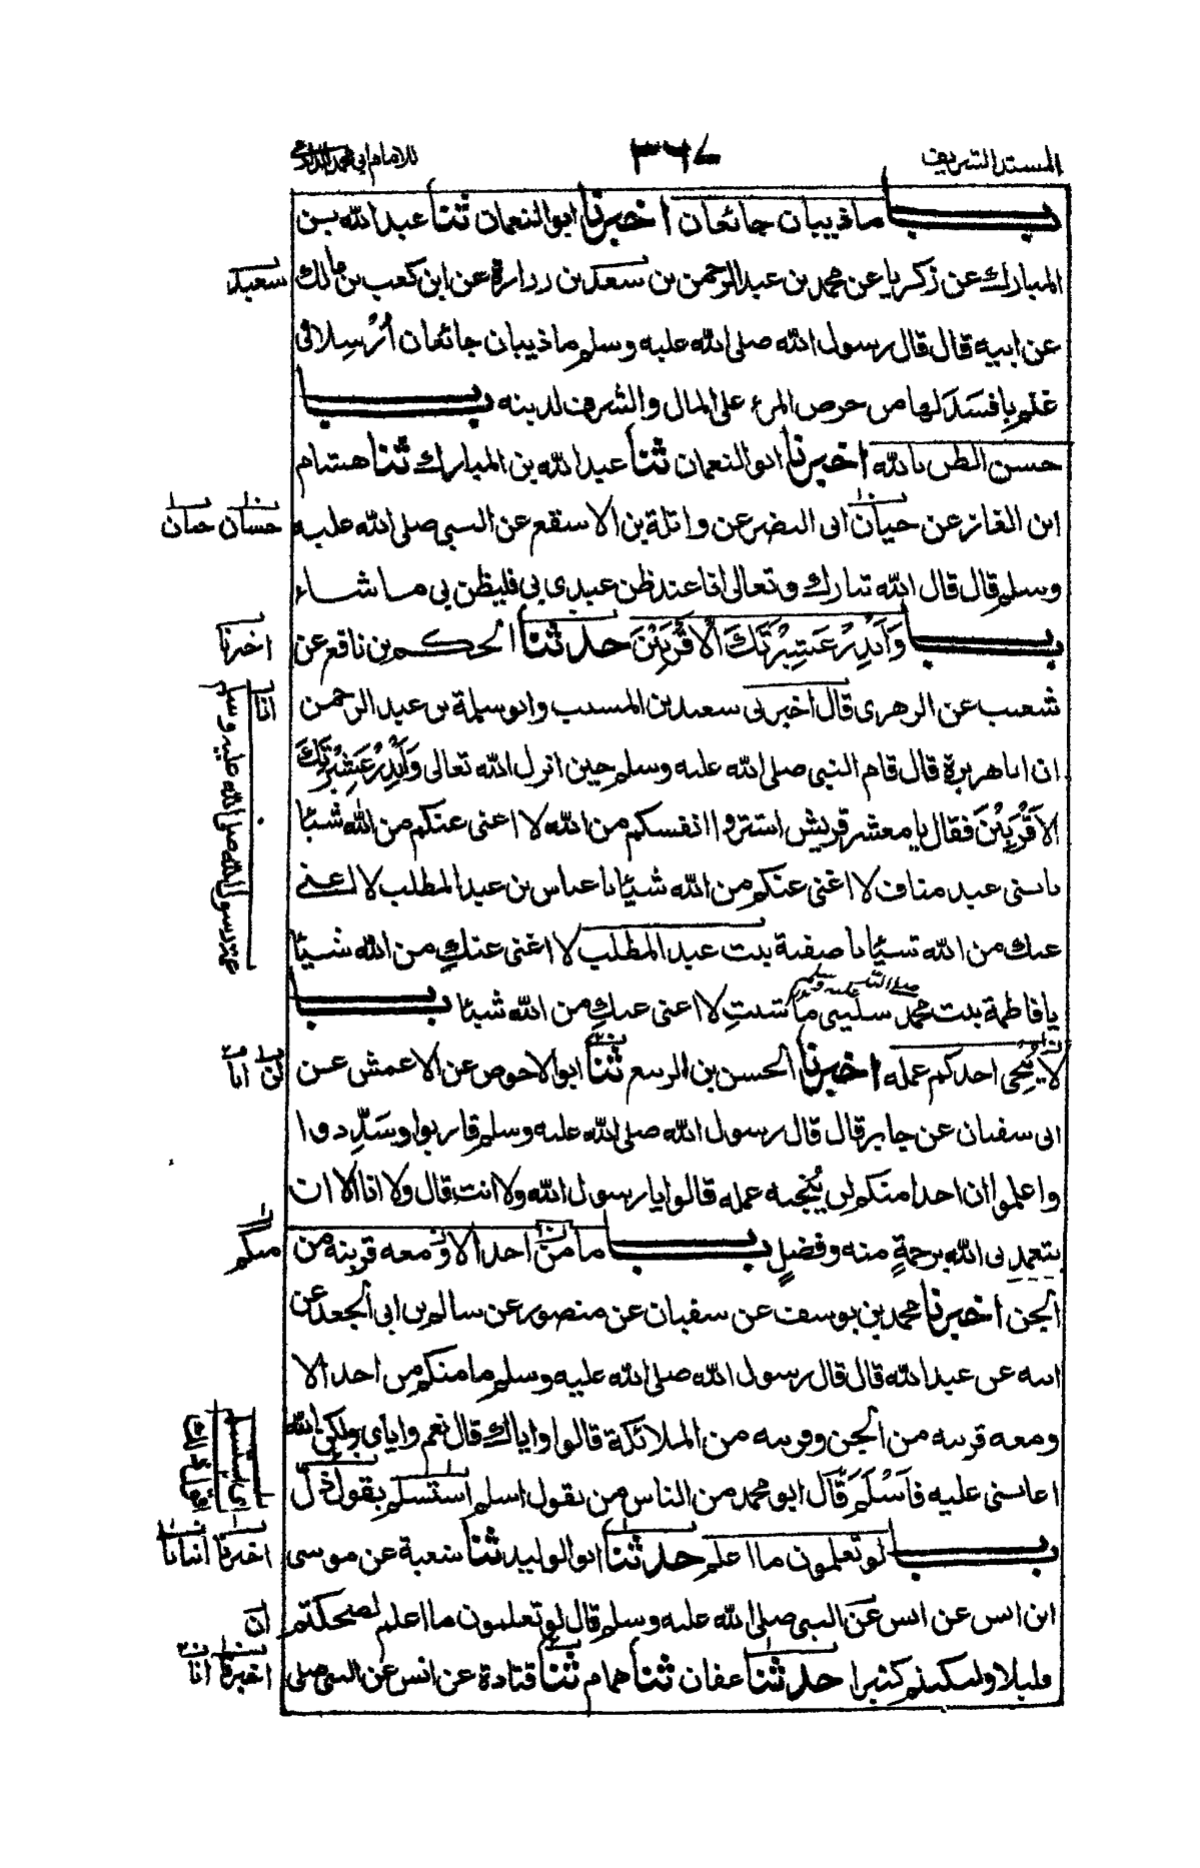 المسند الشريف
٣٦٧
للامام ابي محمد الدارمي
باب ما ذيبان جائعان اخبرنا ابو النعمان ثنا عبد الله بن
المبارك عن زكريا عن محمد بن عبد الرحمن بن سعد بن زرارة عن ابن كعب بن مالك
سعيد
عن ابيه قال قال رسول الله صلى الله عليه وسلم ما ذيبان جائعان اُرْسِلا في
غنم بِافسَدَ لها من حرص المرء على المال والشرف لدينه باب
حسن الظن بالله اخبرنا ابو النعمان ثنا عبد الله بن المبارك ثنا هشام
ابن الغاز عن حيان ابي النضر عن واثلة بن الاسقع عن النبي صلى الله عليه
حسان حبان
وسلم قال قال الله تبارك وتعالى انا عند ظن عبدي بي فليظن بي ما شاء
باب وَاَنْذِرْ عَشِيْرَتَكَ الْاَقْرَبِيْنَ حدثنا الحكم بن نافع عن
اخبرنا
شعيب عن الزهري قال اخبرني سعيد بن المسيب وابو سلمة بن عبد الرحمن
انا
ان ابا هريرة قال قام النبي صلى الله عليه وسلم حين انزل الله تعالى وَاَنْذِرْ عَشِيْرَتَكَ
الاَقْرَبِيْنَ فقال يا معشر قريش اشتروا انفسكم من الله لا اغنى عنكم من الله شيئا
يا بني عبد مناف لا اغنى عنكم من الله شيئا يا عباس بن عبد المطلب لا اغنى
عنك من الله شيئا يا صفية بنت عبد المطلب لا اغنى عنكِ من الله شيئا
عمة رسول الله صلى الله عليه وسلم
يا فاطمة بنت محمد سليني ما شئتِ لا اغنى عنكِ من الله شيئا باب
صلى الله عليه وسلم
لا يُنجي احدكم عمله اخبرنا الحسن بن الربيع ثنا ابو الاحوص عن الاعمش عن
لن انا
ابي سفيان عن جابر قال قال رسول الله صلى الله عليه وسلم قاربوا وسَدِّدوا
واعلموا ان احدا منكم لن يُنْجيه عمله قالوا يا رسول الله ولا انت قال ولا انا الا ان
يتغمدني الله برحمةٍ منه وفضلٍ باب ما من احد الا ومعه قرينه من
منكم
الجن اخبرنا محمد بن يوسف عن سفيان عن منصور عن سالم بن ابي الجعد عن
ابيه عن عبد الله قال قال رسول الله صلى الله عليه وسلم ما منكم من احد الا
ومعه قرينه من الجن وقرينه من الملائكة قالوا واياك قال نعم واياى ولكن الله
اعانني عليه فَاَسْلَمَ قال ابو محمد من الناس من يقول اسلم استسلم يقول ذلّ
باب لو تعلمون ما اعلم حدثنا ابو الوليد ثنا شعبة عن موسى
اخبرنا انبانا
ابن انس عن انس عن النبي صلى الله عليه وسلم قال لو تعلمون ما اعلم لضحكتم
ان
قليلا ولبكيتم كثيرا حدثنا عفان ثنا همام ثنا قتادة عن انس عن النبي صلى
اخبرنا انا